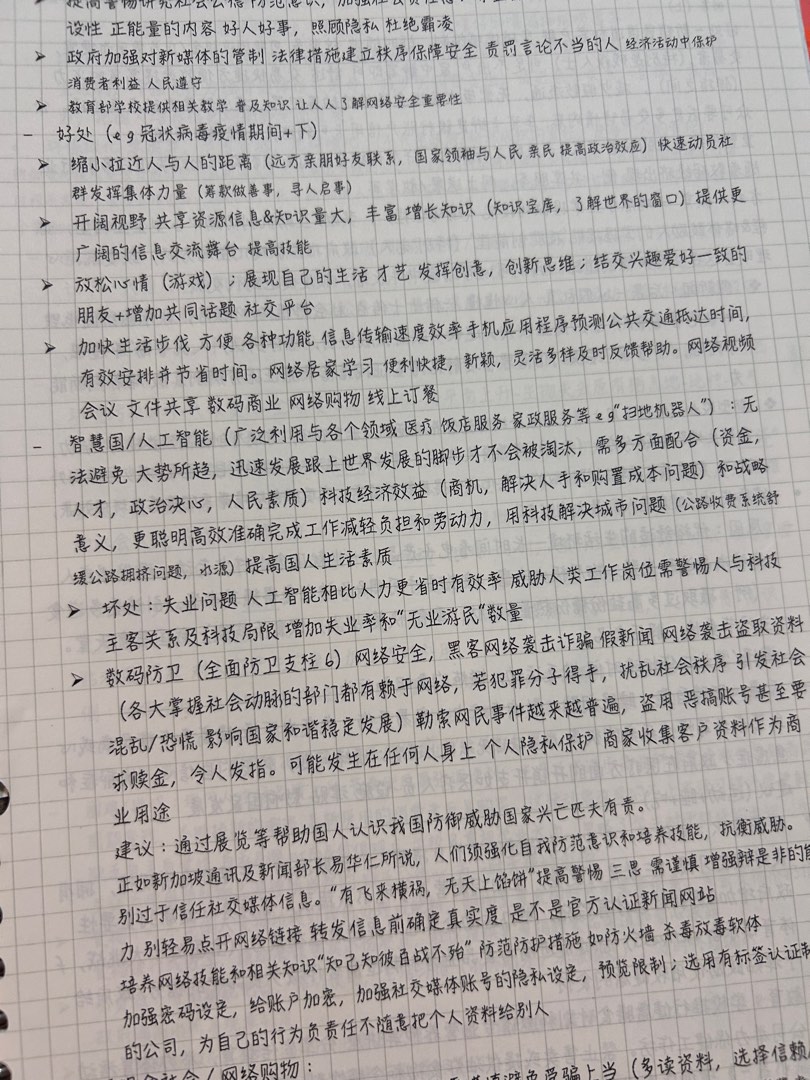 ➤ 提高警惕研究社会公德 防范意识，加强社会责任感
设性 正能量的内容 好人好事，照顾隐私 杜绝霸凌
➤ 政府加强对新媒体的管制 法律措施建立秩序保障安全 责罚言论不当的人 经济活动中保护
消费者利益 人民遵守
➤ 教育部学校提供相关教学 普及知识 让人人了解网络安全重要性
– 好处（eg冠状病毒疫情期间+下）
➤ 缩小拉近人与人的距离（远方亲朋好友联系，国家领袖与人民 亲民 提高政治效应）快速动员社
群发挥集体力量（筹款做善事，寻人启事）
➤ 开阔视野 共享资源信息&知识量大，丰富 增长知识（知识宝库，了解世界的窗口）提供更
广阔的信息交流舞台 提高技能
➤ 放松心情（游戏）；展现自己的生活 才艺 发挥创意，创新思维；结交兴趣爱好一致的
朋友+增加共同话题 社交平台
➤ 加快生活步伐 方便 各种功能 信息传输速度效率手机应用程序预测公共交通抵达时间，
有效安排并节省时间。网络居家学习 便利快捷，新颖，灵活多样及时反馈帮助。网络视频
会议 文件共享 数码商业 网络购物 线上订餐
– 智慧国/人工智能（广泛利用与各个领域 医疗 饭店服务 家政服务等eg“扫地机器人”）：无
法避免 大势所趋，迅速发展跟上世界发展的脚步才不会被淘汰，需多方面配合（资金，
人才，政治决心，人民素质）科技经济效益（商机，解决人手和购置成本问题）和战略
意义，更聪明高效准确完成工作减轻负担和劳动力，用科技解决城市问题（公路收费系统舒
缓公路拥挤问题，水源）提高国人生活素质
➤ 坏处：失业问题 人工智能相比人力更省时有效率 威胁人类工作岗位需警惕人与科技
主客关系及科技局限 增加失业率和“无业游民”数量
➤ 数码防卫（全面防卫支柱6）网络安全，黑客网络袭击诈骗 假新闻 网络袭击盗取资料
（各大掌握社会动脉的部门都有赖于网络，若犯罪分子得手，扰乱社会秩序 引发社会
混乱/恐慌 影响国家和谐稳定发展）勒索网民事件越来越普遍，盗用 恶搞账号甚至要
求赎金，令人发指。可能发生在任何人身上 个人隐私保护 商家收集客户资料作为商
业用途
建议：通过展览等帮助国人认识我国防御威胁国家兴亡匹夫有责。
正如新加坡通讯及新闻部长易华仁所说，人们须强化自我防范意识和培养技能，抗衡威胁。
别过于信任社交媒体信息。“有飞来横祸，无天上馅饼”提高警惕 三思 需谨慎 增强辩是非的能
力 别轻易点开网络链接 转发信息前确定真实度 是不是官方认证新闻网站
培养网络技能和相关知识“知己知彼百战不殆” 防范防护措施 如防火墙 杀毒放毒软体
加强密码设定，给账户加密，加强社交媒体账号的隐私设定，预览限制；选用有标签认证制
的公司，为自己的行为负责任不随意把个人资料给别人
社会/网络购物：
避免受骗上当（多读资料，选择信赖